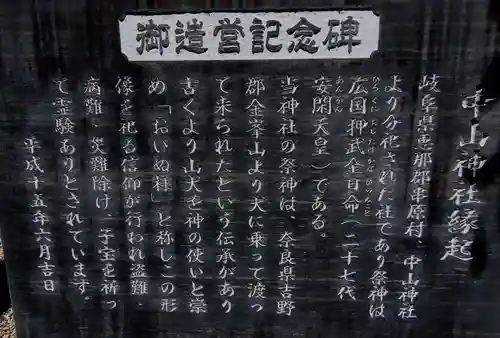 御造営記念碑
中山神社縁起
岐阜県恵那郡串原村、中山神社
より分祀された社であり祭神は
広国押武金日命(二十七代
ひろくにおしたけかなひのみこと
安閑天皇)である。
あんかん
当神社の祭神は、奈良県吉野
郡金峯山より犬に乗って渡っ
て来られたという伝承があり
古くより山犬を神の使いと崇
め「おいぬ様」と称しこの形
像を祀る信仰が行われ盗難
病難、災難除け、子宝を祈っ
て霊験ありとされています。
平成十五年六月吉日